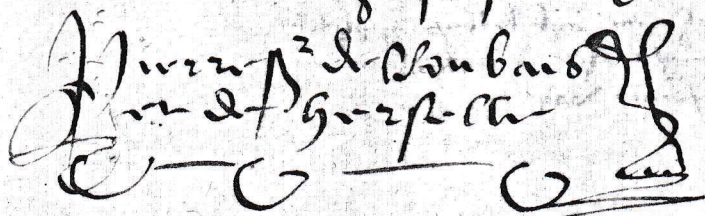 Pierre sr de Roubais
et de herselle